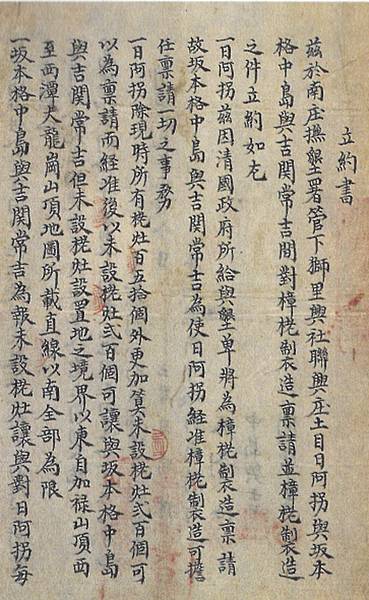 立約書
茲於南庄撫墾署管下獅里興社聯興庄土目日阿拐與坂本
格中島與吉関常吉間對樟栳製造稟請並樟栳製造
之件立約如左
一日阿拐茲因清國政府所給與墾單將為樟栳製造稟請
故坂本格中島與吉関常吉為使日阿拐経准樟栳製造可擔
任稟請一切之事務
一日阿拐除現時所有栳灶百五拾個外更加算未設栳灶弍百個可
以為稟請而経准後以未設栳灶弍百個可讓與坂本格中島
與吉関常吉但未設栳灶設置地之境界以東自加禄山頂西
至西潭大龍崗山頂地圖所載直線以南全部為限
一坂本格中島與吉関常吉為報未設栳灶讓與對日阿拐每